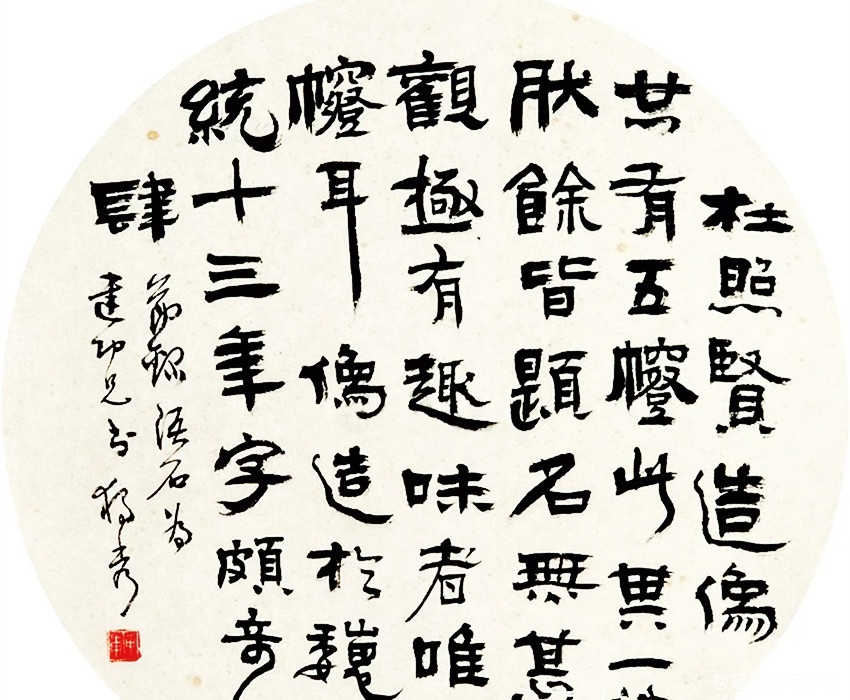 杜照賢造像
共有五此其一
肰餘皆題名無甚
觀極有趣味者唯
耳像造於魏
統十三年字頗奇
肆
節錄語石為
建功兄書 獨秀